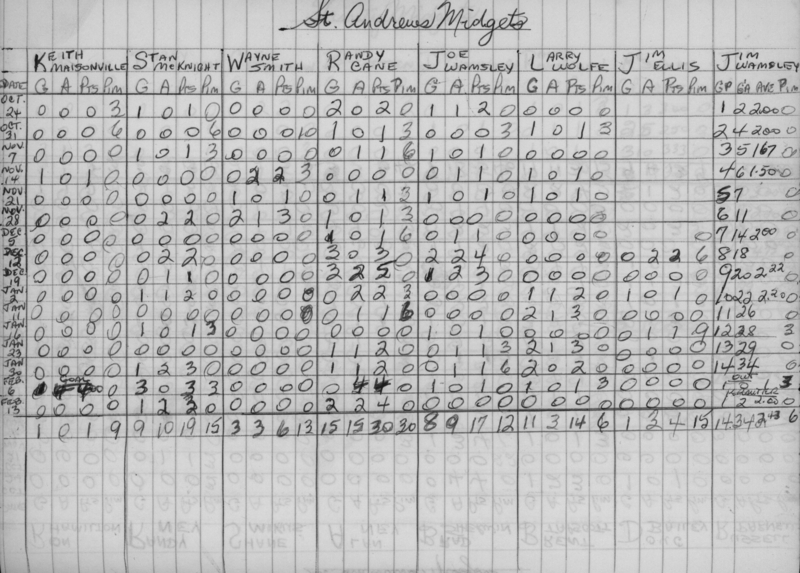 St. Andrews Midgets
KEITH MAISONVILLE STAN McKNIGHT WAYNE SMITH RANDY CANE JOE WAMSLEY LARRY WOLFE JIM ELLIS JIM WAMSLEY
DATE G A Pts Pim G A Pts Pim G A Pts Pim G A Pts Pim G A Pts Pim G A Pts Pim G A Pts Pim GP GA AVG Pim
OCT. 24 0 0 0 3 1 0 1 0 0 0 0 0 2 0 2 0 1 1 2 0 0 0 0 0 1 2 2.00 0
OCT. 31 0 0 0 6 0 0 0 6 0 0 0 10 1 0 1 3 0 0 0 3 1 0 1 3 2 4 2.00 0
NOV. 7 0 0 0 0 1 0 1 3 0 0 0 0 0 1 1 6 1 0 1 0 0 0 0 0 3 5 1.67 0
NOV. 14 1 0 1 0 0 0 0 0 0 2 2 3 0 0 0 0 0 1 1 0 1 0 1 0 4 6 1.50 0
NOV. 21 0 0 0 0 0 0 0 0 1 0 1 0 0 1 1 3 1 0 1 0 1 0 1 0 5 7 0
NOV. 28 0 0 0 0 0 2 2 0 2 1 3 0 1 0 1 3 0 0 0 0 0 0 0 0 6 11 0
DEC 5 0 0 0 0 0 0 0 0 0 0 0 0 1 0 1 6 0 1 1 0 0 0 0 0 7 14 2.00 0
DEC 12 0 0 0 0 0 2 2 0 0 0 0 0 3 0 3 0 2 2 4 0 0 0 0 0 0 2 2 6 8 18 0
DEC 19 0 0 0 0 0 1 1 0 0 0 0 0 3 2 0 1 2 3 0 0 0 0 0 0 0 0 0 9 20 2.22 0
JAN 2 0 0 0 0 1 1 2 0 0 0 0 0 2 2 3 0 0 0 0 1 1 2 0 1 0 1 0 10 22 2.20 0
JAN 0 0 0 0 0 0 0 0 0 0 0 0 1 1 6 0 0 0 0 2 1 3 0 11 26 0
JAN 0 0 0 0 1 0 1 3 0 0 0 0 0 0 0 0 1 0 1 0 0 0 0 0 0 1 1 9 12 28 3
JAN 23 0 0 0 0 0 0 0 0 0 0 0 0 1 1 2 0 0 1 1 3 2 1 3 0 0 0 0 0 13 29 0
JAN 1 2 3 0 0 0 0 0 1 1 2 0 0 1 1 6 2 0 2 0 0 0 0 0 14 34 0
FEB. 6 3 0 3 3 0 0 0 0 0 4 4 0 1 0 1 0 1 0 1 3 0 0 0 0 3
FEB. 13 0 0 0 0 1 2 0 0 0 0 0 2 2 4 0 0 0 0 0 0 0 0 0 0 0 0 0
1 0 1 9 9 10 19 15 3 3 6 13 15 15 30 30 8 9 17 12 11 3 14 6 1 3 4 15 14 34 2.43 6